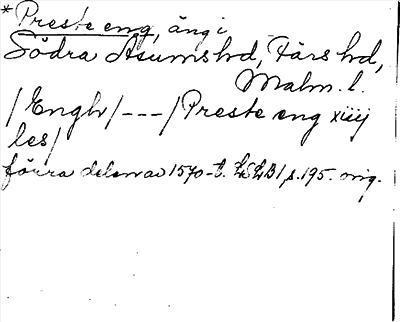 *Preste eng, äng i
Södra Åsums hd, Färs hd,
Malm. l.
/Engh/---/Preste eng xiiij
les/
förra delen av 1570-t. LLB1 s. 195. orig.